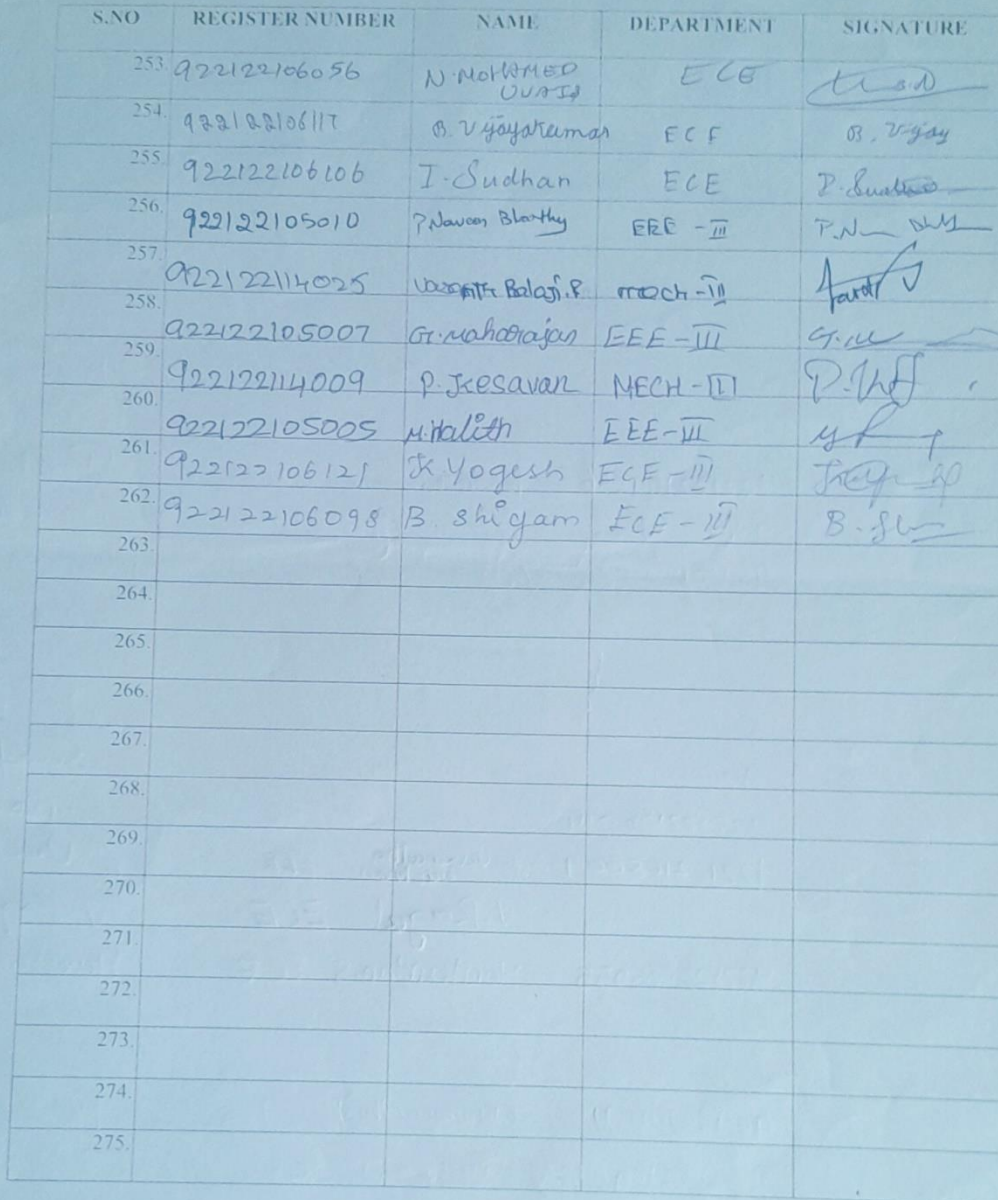 S.NO REGISTER NUMBER NAME DEPARTMENT SIGNATURE
253. 922122106056 N.MOHAMED UVAIS ECE
254. 922122106117 B. Vijayakumar ECE B. Vijay
255. 922122106106 I. Sudhan ECE
256. 922122105010 P.Naveen Bharathy EEE - III
257. 922122114025 Balaji.P mech - III
258. 922122105007 G.Maharajan EEE - III
259. 922122114009 P. Kesavan MECH - III
260. 922122105005 M.Halith EEE - III
261. 922122106121 K Yogesh ECE - III
262. 922122106098 B. Shigam ECE - III
263.
264.
265.
266.
267.
268.
269.
270.
271.
272.
273.
274.
275.